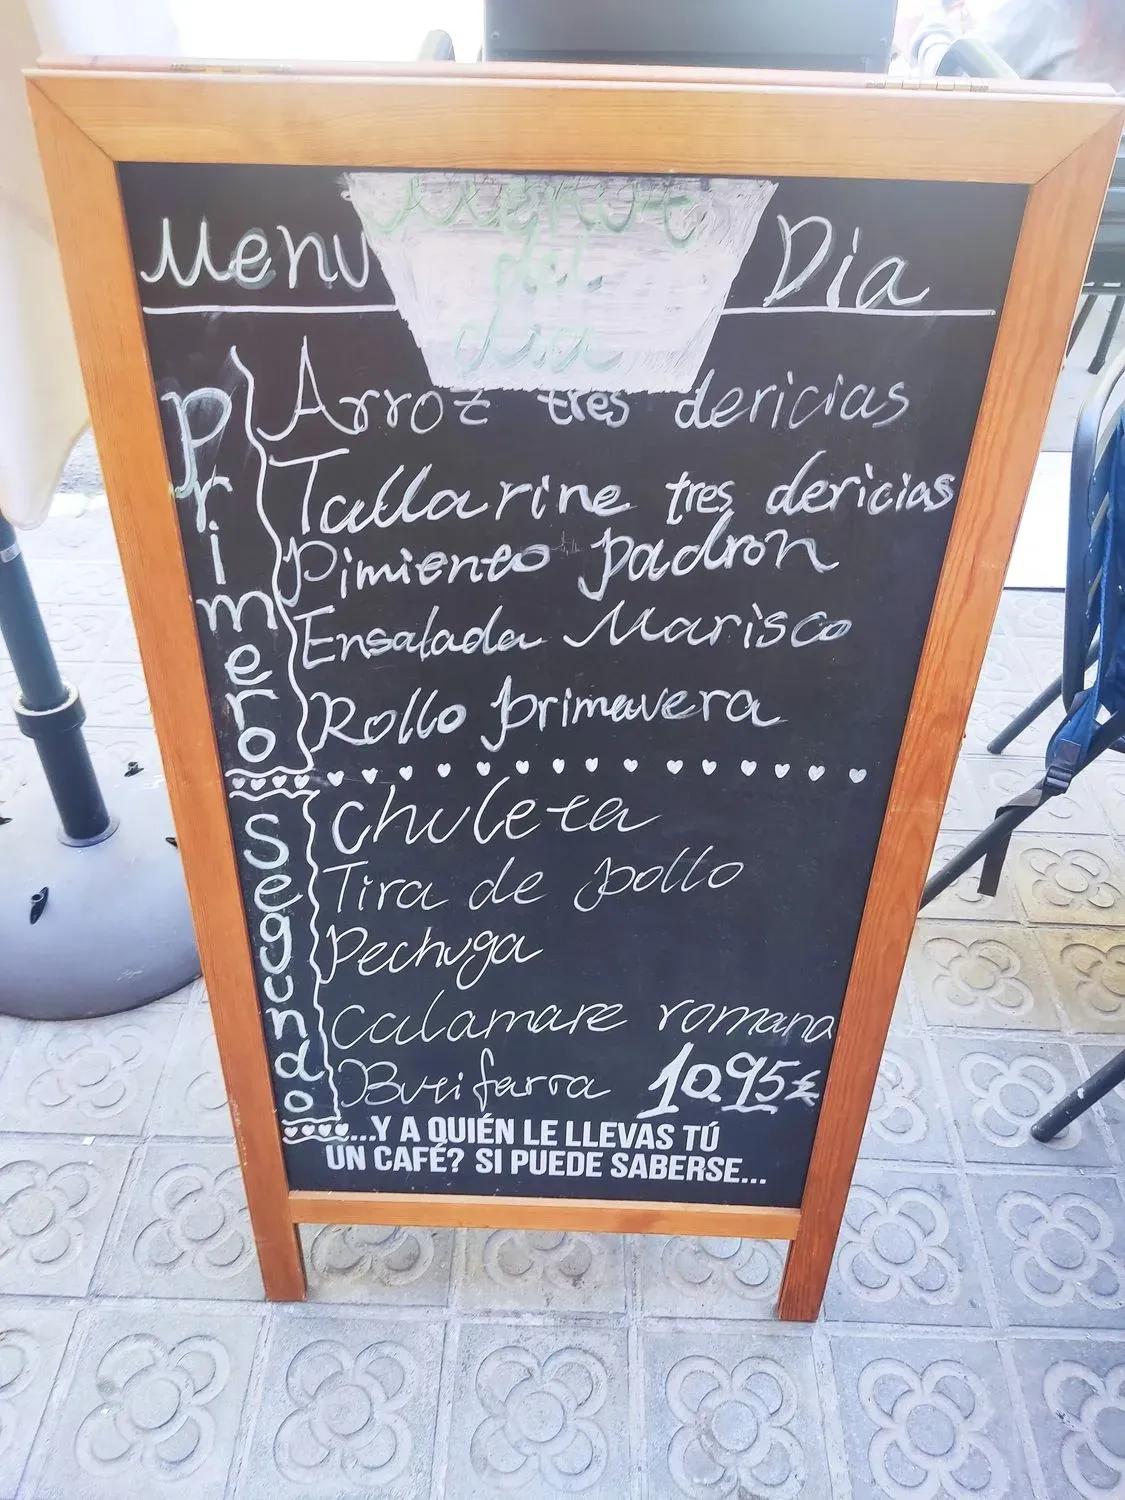 Menu Dia
menu
del
dia
Primero
Arroz tres dericias
Tallarine tres dericias
Pimiento padron
Ensalada Marisco
Rollo primavera
Segundo
Chuleta
Tira de pollo
Pechuga
Calamare romana
Butifarra 10.95€
...Y A QUIÉN LE LLEVAS TÚ
UN CAFÉ? SI PUEDE SABERSE...